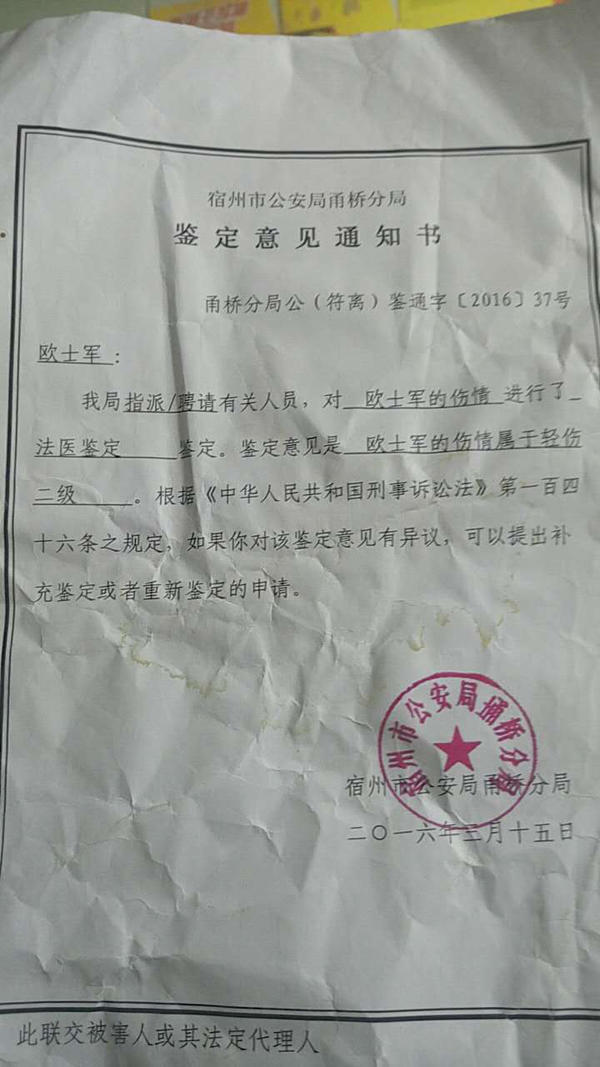 宿州市公安局甬桥分局
鉴定意见通知书
甬桥分局公（符离）鉴通字〔2016〕37号
欧士军：
我局指派/聘请有关人员，对 欧士军的伤情 进行了
法医鉴定 鉴定。鉴定意见是 欧士军的伤情属于轻伤
二级 。根据《中华人民共和国刑事诉讼法》第一百四
十六条之规定，如果你对该鉴定意见有异议，可以提出补
充鉴定或者重新鉴定的申请。
宿州市公安局埇桥分局
宿州市公安局甬桥分局
二〇一六年三月十五日
此联交被害人或其法定代理人